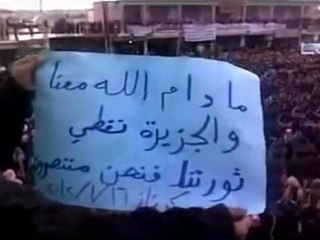 ما دام الله معنا
والجزيرة تغطي
ثورتنا فنحن منتصرون